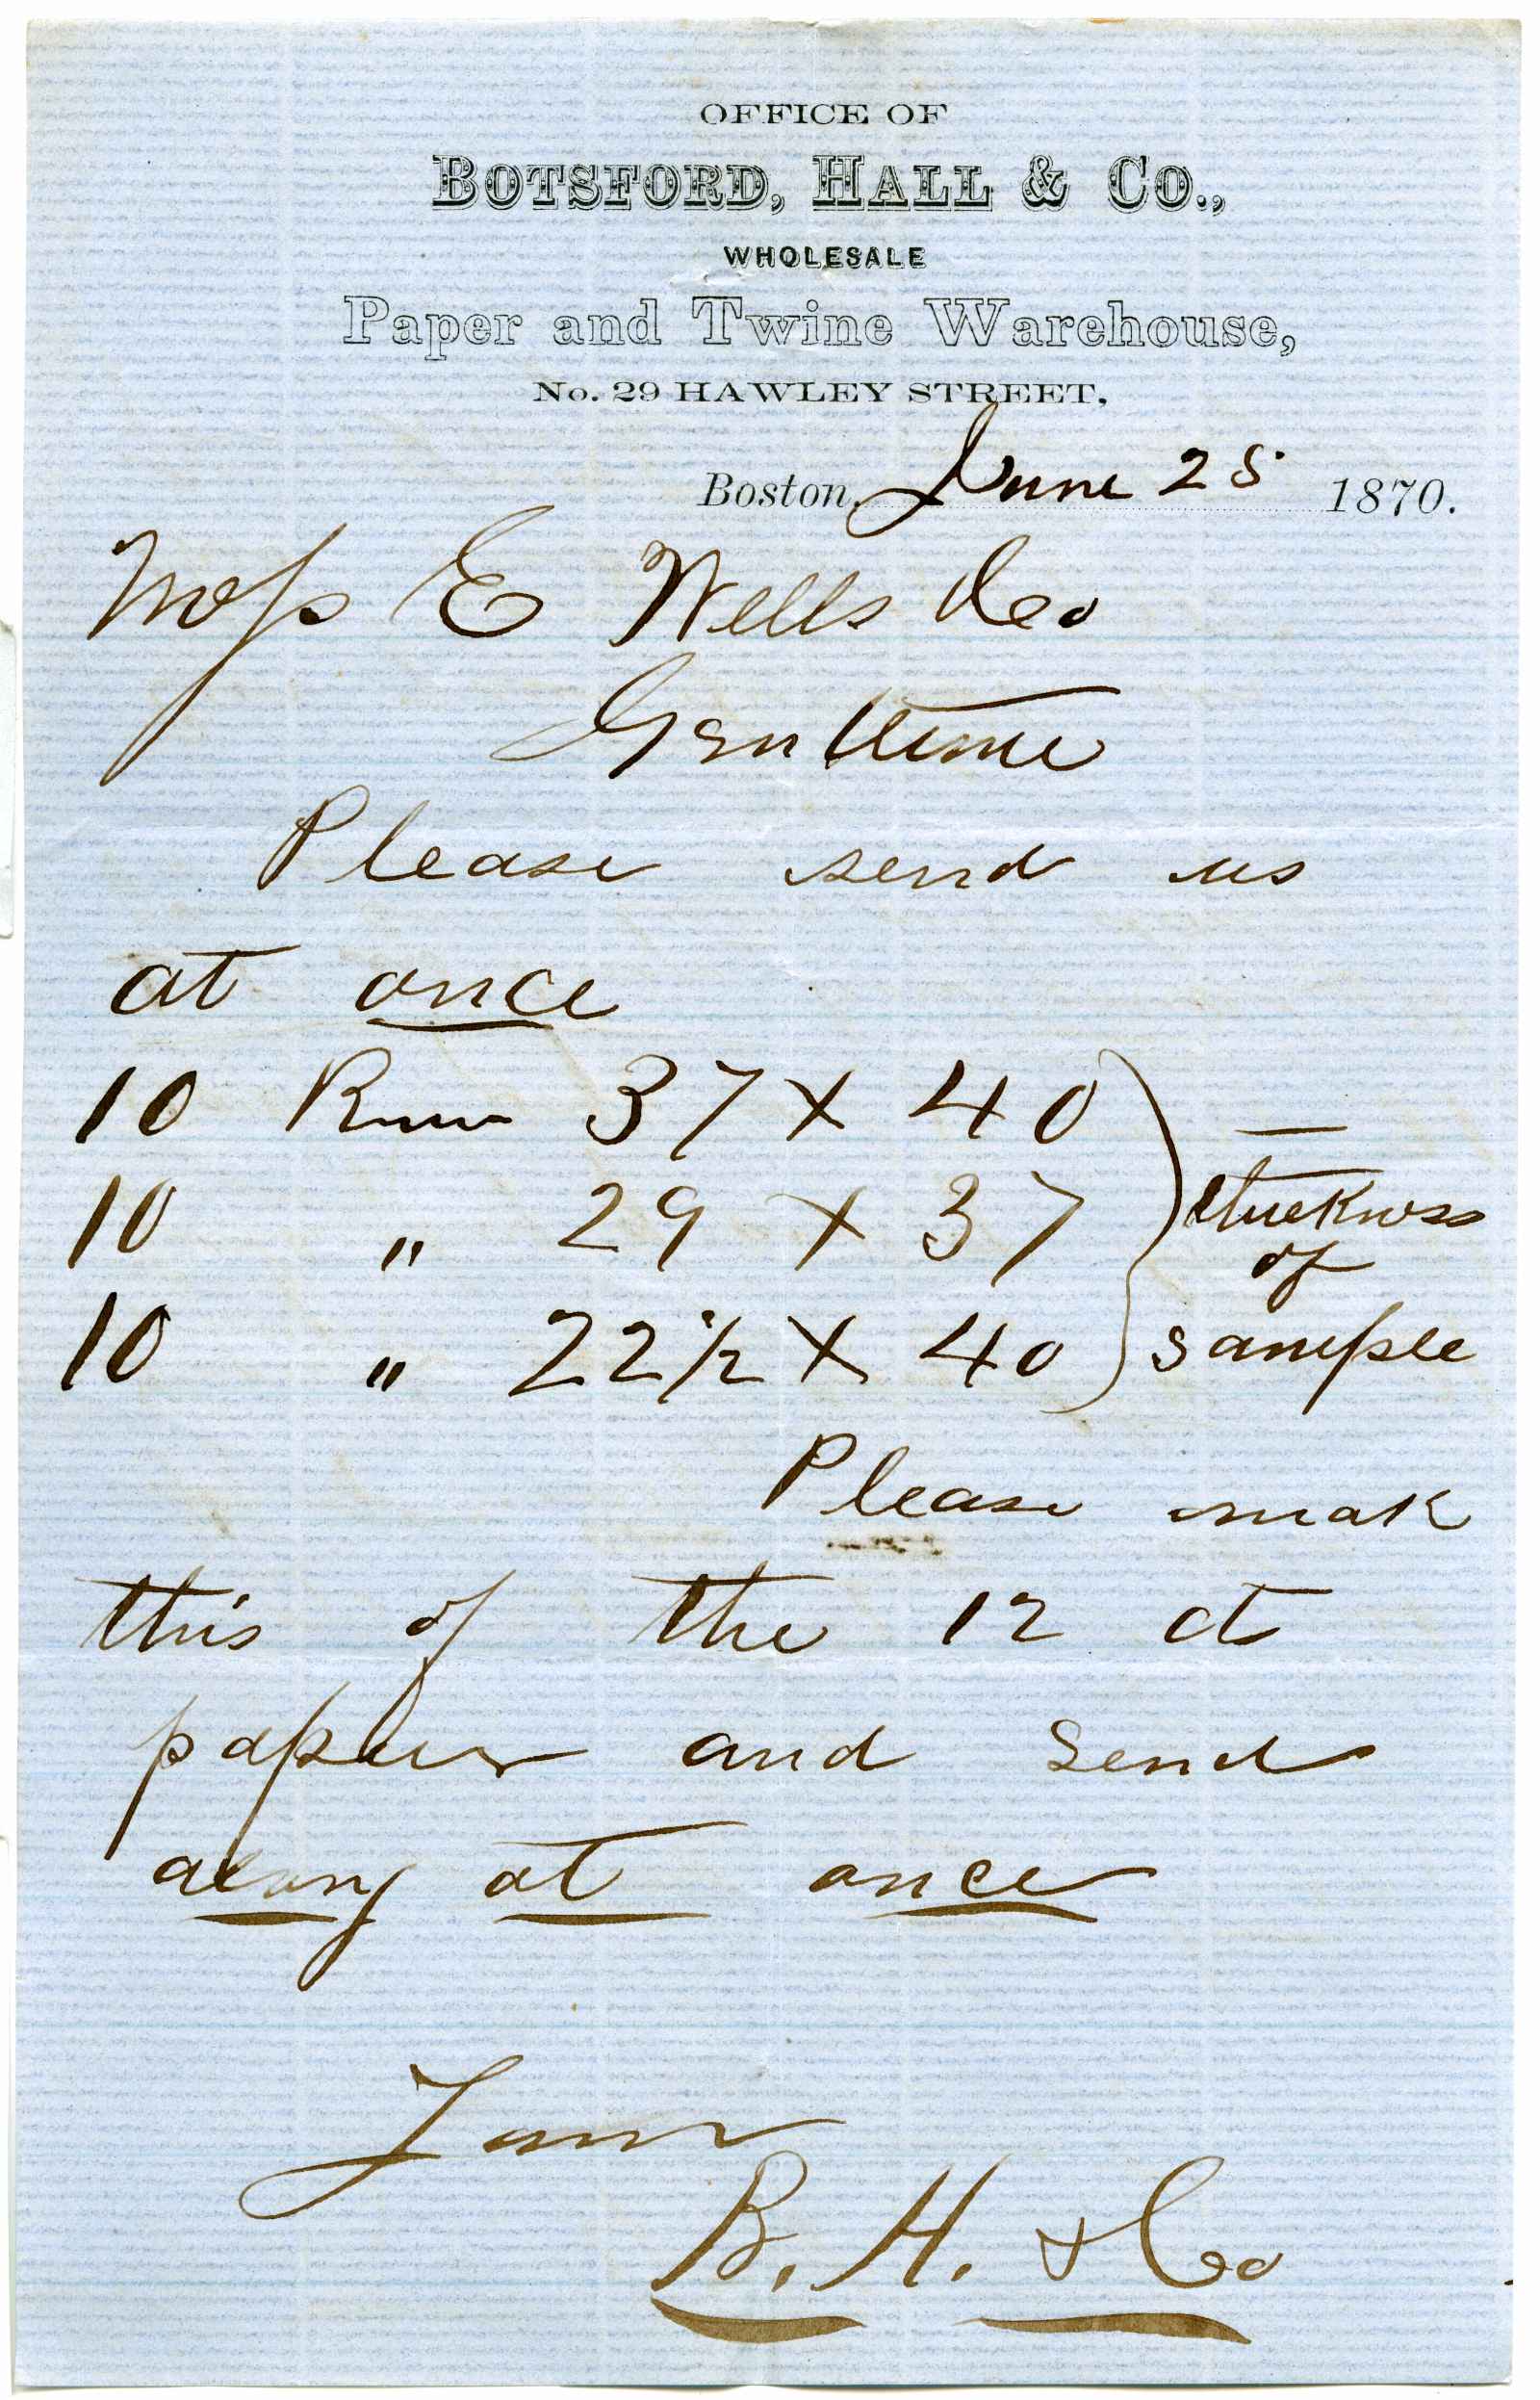 OFFICE OF
BOTSFORD, HALL & CO.,
WHOLESALE
Paper and Twine Warehouse,
No. 29 HAWLEY STREET,
Boston, June 25 1870.
E Wells & Co
Gentleme
Please send us
at once
10 Rms 37 X 40 —
10 " 29 X 37 thickness
of
10 " 22 1/2 X 40 sample
Please mak
this of the 12 ct
paper and send
along at once
Yours
B. H. & Co